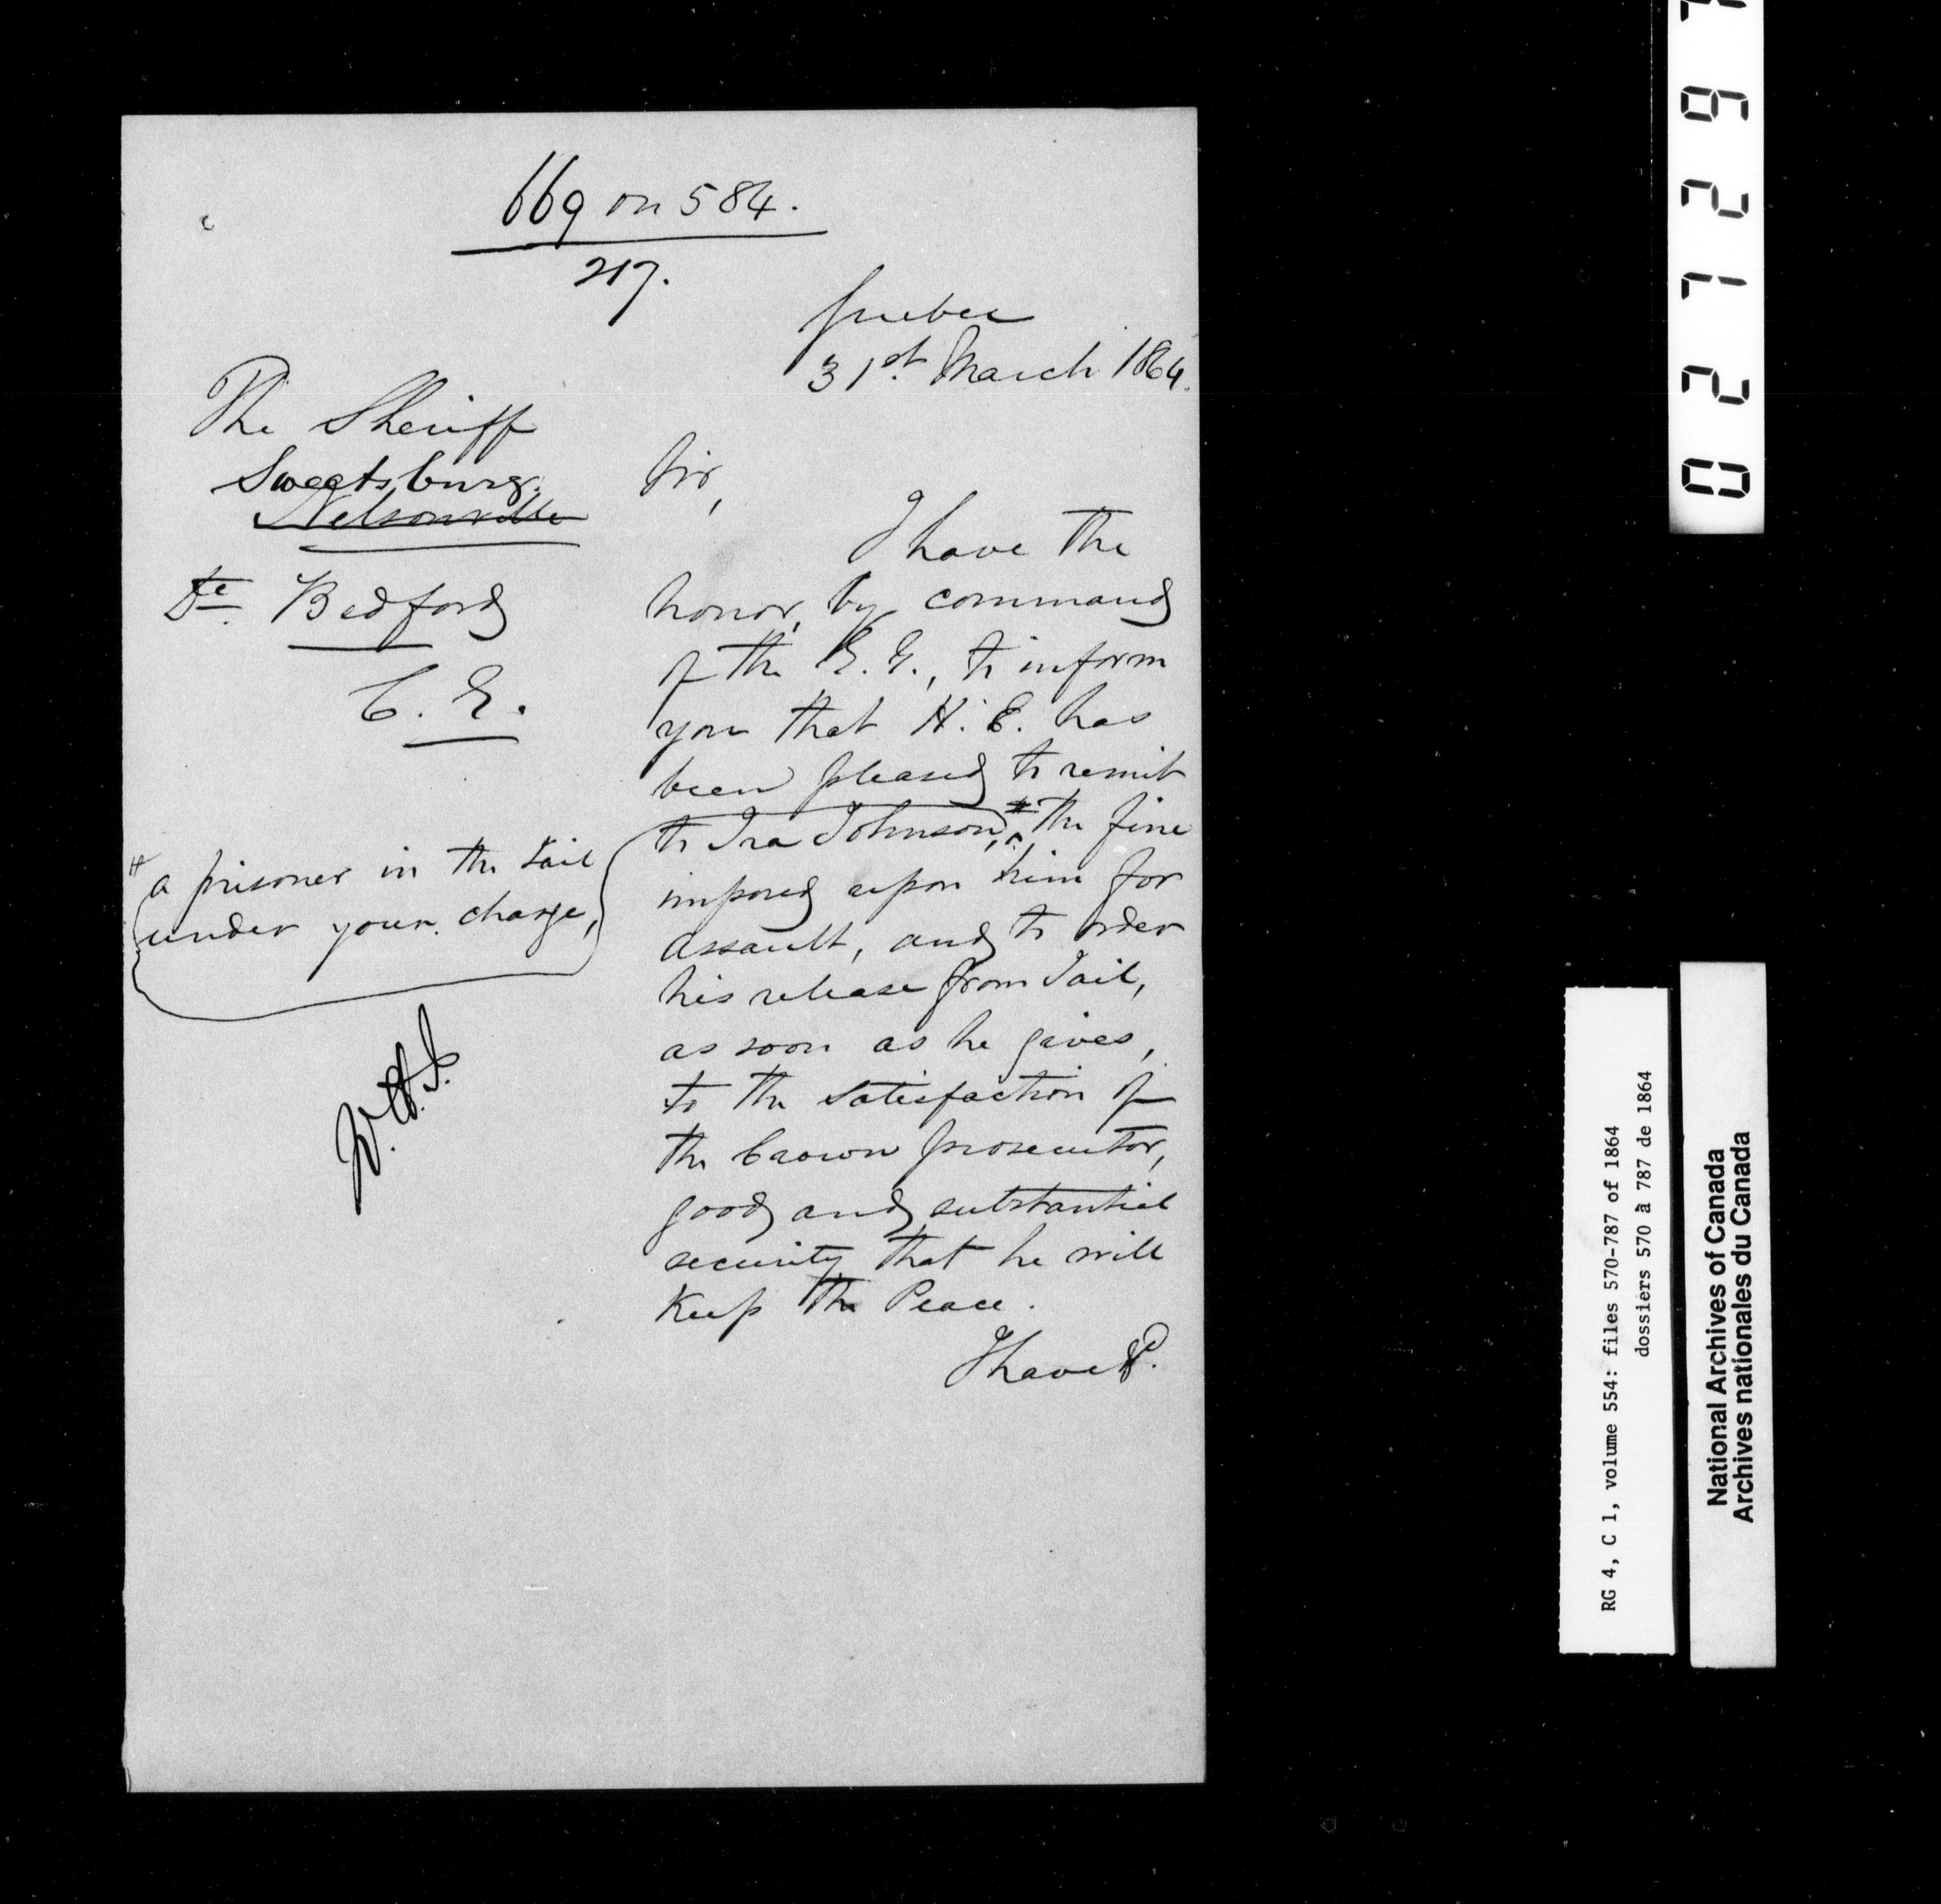 669 on 584.
217.
Quebec
31st. March 1864.
The Sheriff
Sweetsburg.
Nelsonville
Dte. Bedford
C. E.
Sir,
I have the
honor, by command
of the G. G., to inform
you that H. E. has
been pleased to remit
to Ira Johnson, # the fine
imposed upon him for
assault, and to order
his release from Jail,
as soon as he gives,
to the satisfaction of
the Crown prosecutor,
good and substantial
security that he will
Keep the Peace.
I have &c.
# a prisoner in the Jail
under your charge,
RG 4, C 1, volume 554: files 570-787 of 1864
dossiers 570 à 787 de 1864
National Archives of Canada
Archives nationales du Canada